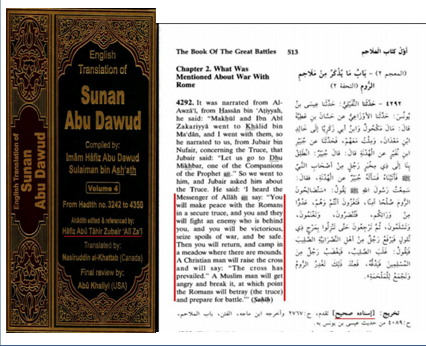 English
Translation of
Sunan
Abu Dawud
Compiled by:
Imâm Hâfiz Abu Dawud
Sulaiman bin Ash'ath
Volume 4
From Hadith no. 3242 to 4350
Ahâdith edited & referenced by:
Hâfiz Abû Tâhir Zubair 'Alî Za'î
Translated by:
Nasiruddin al-Khattab (Canada)
Final review by:
Abû Khaliyl (USA)
English Translation of
Sunan
Abu Dawud
The Book Of The Great Battles 513 أول كتاب الملاحم
Chapter 2. What Was
Mentioned About War With
Rome
4292. It was narrated from Al-
Awzâ'î, from Hassân bin 'Atiyyah
he said: "Makhûl and Ibn Abî
Zakariyyâ went to Khâlid bin
Ma'dân, and I went with them, so
he narrated to us, from Jubair bin
Nufair, concerning the Truce, that
Jubair said: "Let us go to Dhu
Mikhbar, one of the Companions
of the Prophet ﷺ." So we went to
him, and Jubair asked him about
the Truce. He said: 'I heard the
Messenger of Allâh ﷺ say: "You
will make peace with the Romans
in a secure truce, and you and they
will fight an enemy who is behind
you, and you will be victorious,
seize spoils of war, and be safe.
Then you will return, and camp in
a meadow where there are mounds.
A Christian man will raise the cross
and will say: "The cross has
prevailed." A Muslim man will get
angry and break it, at which point
the Romans will betray (the truce)
and prepare for battle."' (Sahîh)
(المعجم ٢) - باب ما يذكر من ملاحم
الروم (التحفة ٢)
٤٢٩٢ - حدثنا النفيلي: حدثنا عيسى بن
يونس: حدثنا الأوزاعي عن حسان بن عطية
قال: مال مكحول وابن أبي زكريا إلى خالد
ابن معدان، وملت معهم، فحدثنا عن جبير
ابن نفير عن الهدنة قال: قال جبير: انطلق
بنا إلى ذي مخبر رجل من أصحاب النبي
ﷺ، فأتيناه فسأله جبير عن الهدنة، فقال:
سمعت رسول الله ﷺ يقول: «ستصالحون
الروم صلحا آمنا، فتغزون أنتم وهم، عدوا
من ورائكم، فتنصرون، وتغنمون،
وتسلمون، ثم ترجعون حتى تنزلوا بمرج ذي
تلول، فيرفع رجل من أهل النصرانية الصليب
فيقول: غلب الصليب، فيغضب رجل من
المسلمين فيدقه، فعند ذلك تغدر الروم
وتجمع للملحمة».
تخريج: [إسناده صحيح] تقدم، ح: ٢٧٦٧